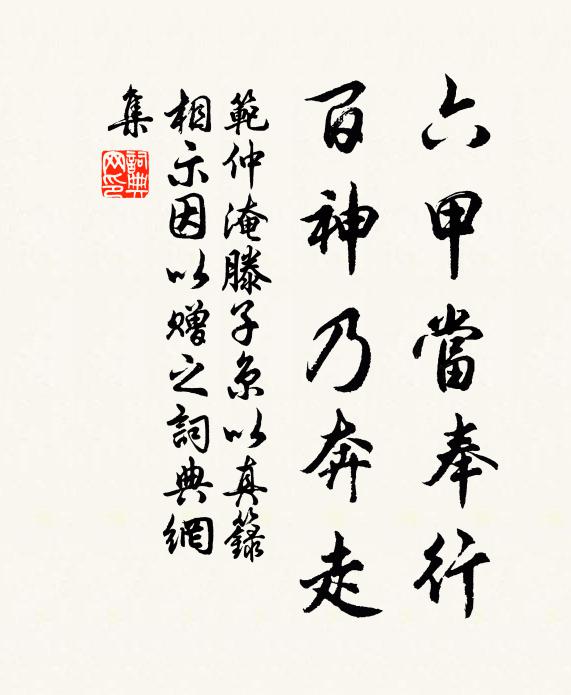 六甲當奉行
百神乃奔走
範仲淹滕子京以真籙
相示因以贈之詞典網
集
詞典
网印